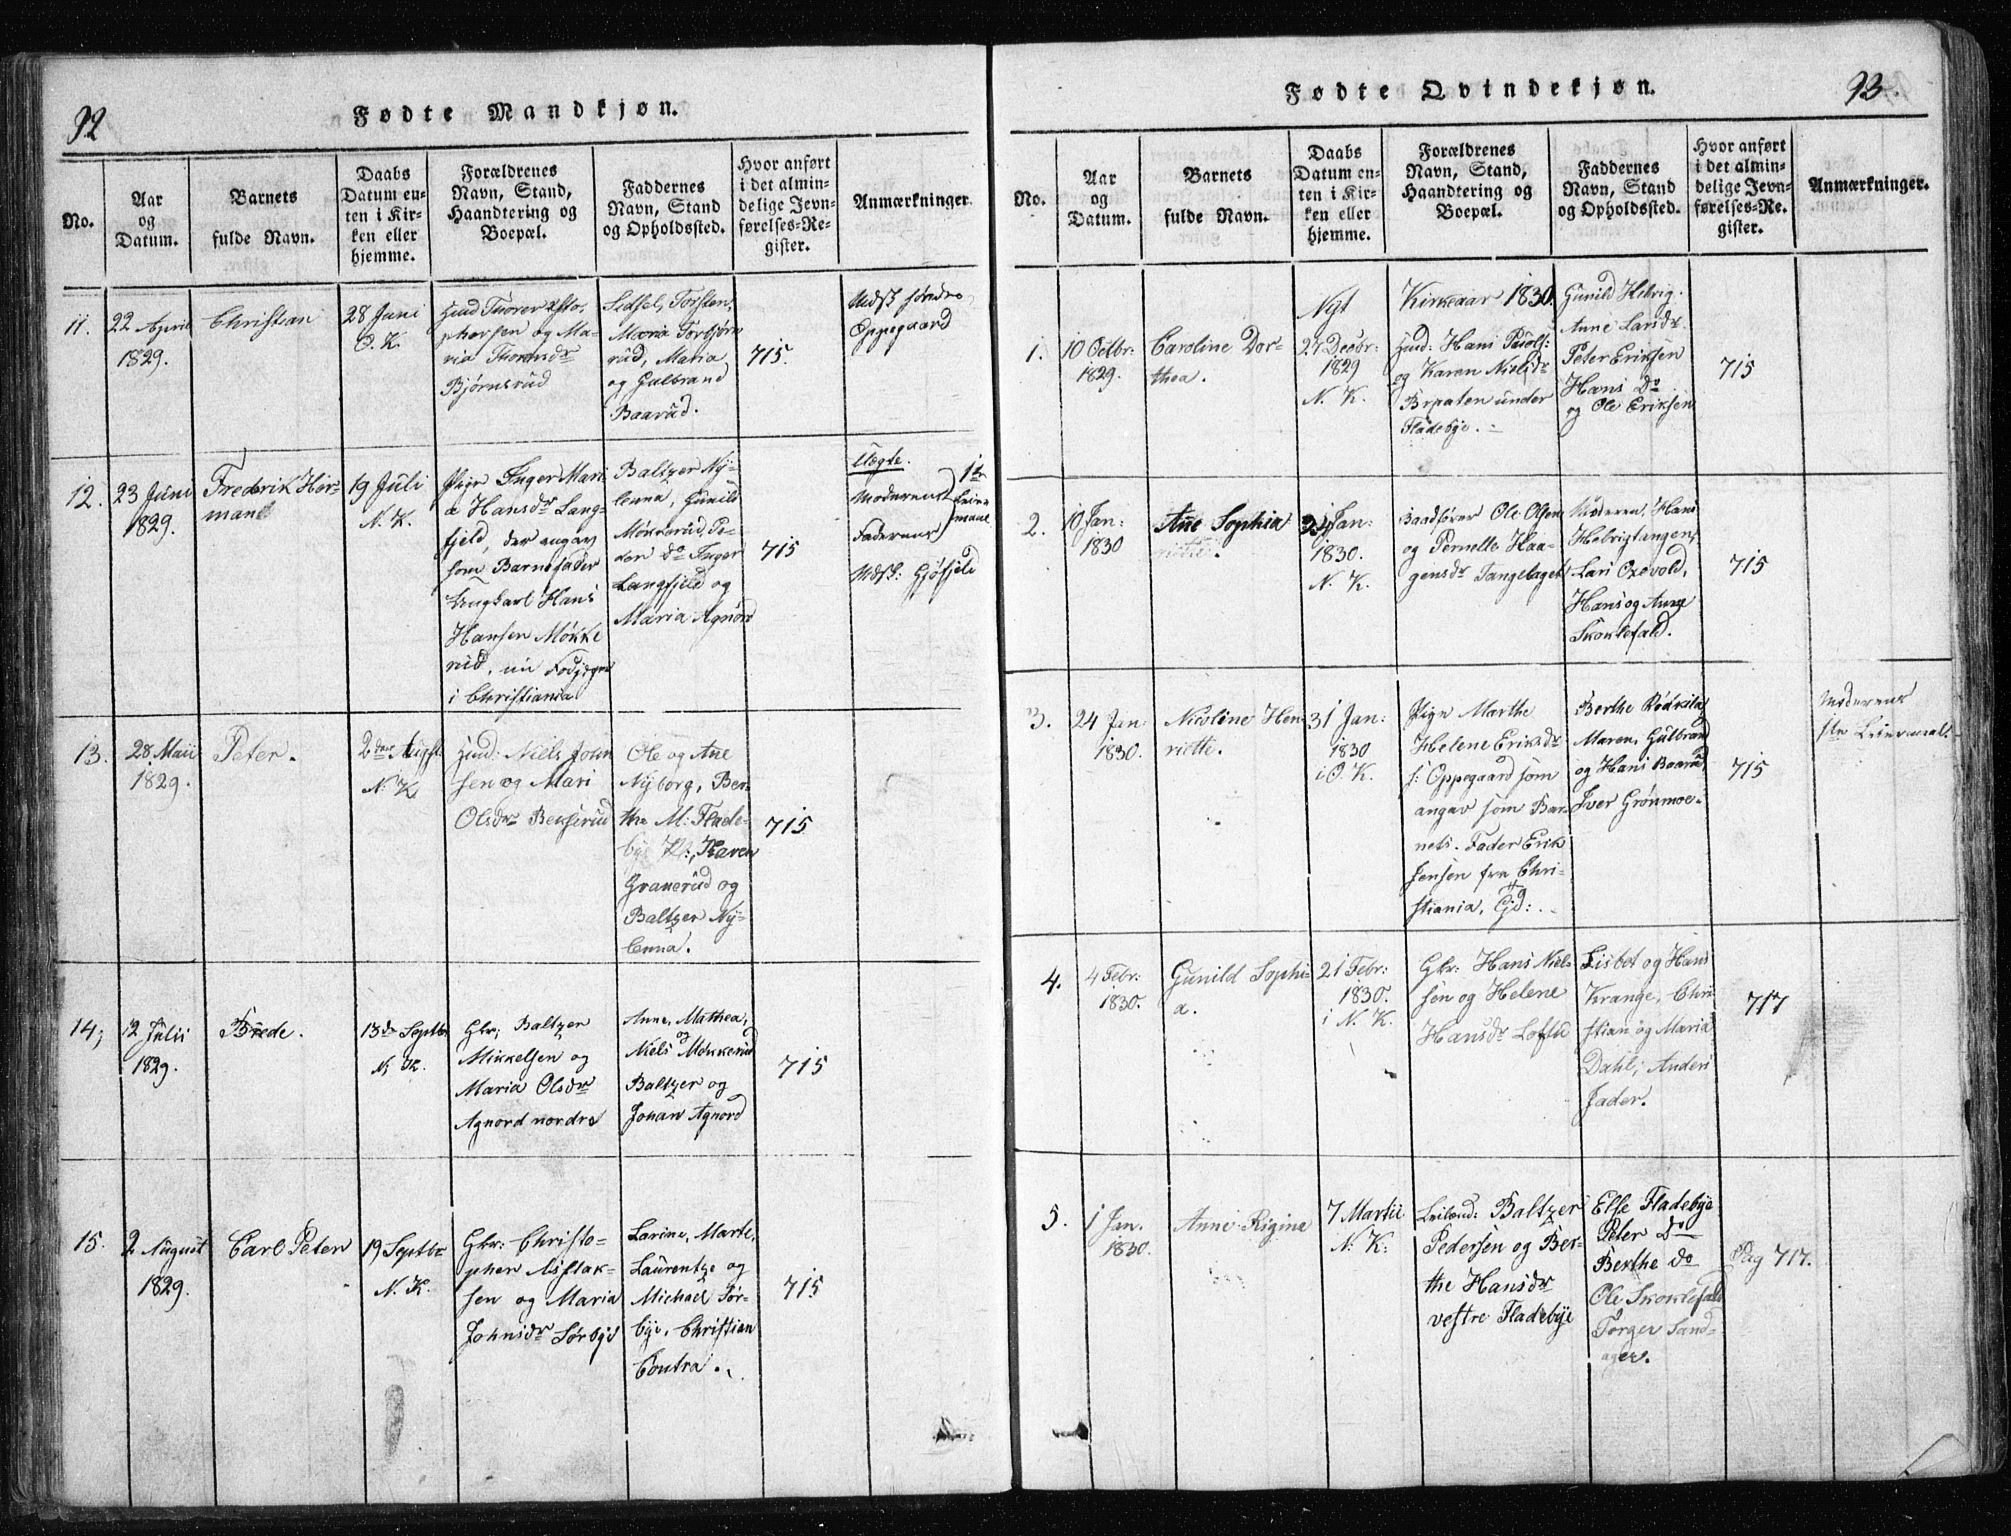 92
Fødte Mandkjøn.
No.
Aar
og
Datum.
Barnets
fulde Navn.
Daabs
Datum en-
ten i Kir-
ken eller
hjemme.
Forældrenes
Navn, Stand,
Haandtering og
Boepæl.
Faddernes
Navn, Stand
og Opholdssted.
Hvor anført
i det almin-
delige Jevn-
førelses-Re-
gister.
Anmærkninger.
11.
22 April
1829.
Christian
28 Juni
O. K.
phersen og Ma-
ria
Bjørnsrud
Sidsel, Torsten,
Maria Torbjørn
rud, Maria
og Gulbrand
Baarud.
715.
søndre
Oppegaard
12.
23 Juni
1829.
Frederik Her-
mand
19 Juli
N. K.
Pige Inger Mari
a Hansdr Lang-
fjeld, der angav
som Barnefader
Ungkarl Hans
Hansen Møkke
rud, nu
i Christiania
Baltzer Ny-
lenna, Gunild
Møkkerud, Pe-
der do Inger
Langfjeld og
Maria Agnord
715
Uægte.
Moderens
Faderens
13.
28 Maii
1829.
Peter.
2den Augst
N. K.
Huusd: Niels John
sen og Mari
Olsdr
Ole og Ane
Nyborg, Ber-
the M: Flade-
bye Karen
Granerud og
Baltzer Ny-
lenna.
715
14;
12 Julii
1829.
Brede.
13de Septbr
N. K.
Gbr; Baltzer
Mikkelsen og
Maria Olsdr
Agnord nordre
Anne, Mathea,
Niels Møkkerud
Baltzer og
Johan Agnord
715
15.
2 August
1829.
Carl Peter
19 Septbr
N. K.
Gbr: Christo-
pher Aslak-
sen og Maria
Johnsdr Sørbye
Larine, Marte,
Laurentze og
Michael Sør-
bye, Christian
Contra.
715
93.
Fødte Qvindekjøn.
No.
Aar
og
Datum.
Barnets
fulde Navn.
Daabs
Datum en-
ten i Kir-
ken eller
hjemme.
Forældrenes
Navn, Stand,
Haandtering og
Boepæl.
Faddernes
Navn, Stand
og Opholdssted.
Hvor anført
i det almin-
delige Jevn-
førelses-Re-
gister.
Anmærkninger.
Nyt Kirkeaar 1830.
1.
10 Octbr:
1829.
Caroline Dor-
thea.
27 Decbr:
1829
N. K.
Huusd: Hans
og Karen Nielsdr
Braaten under
Fladebye.
Gunild Helvig.
Anne Larsdr.
Peter Eriksen
Hans Do
og Ole Eriksen
715
2.
10 Jan:
1830
Ane Sophia
24 Jan:
1830.
N. K.
Baadfører Ole Olsen
og Pernelle Haa-
gensdr Tangelaget
Moderen, Hans
Helvigtangen,
Lars Oxevold,
Hans og Anne
Skoklefald.
715
3.
24 Jan
1830.
Nicoline Hen
riette.
31 Jan:
1830
i O. K.
Pige Marthe
Helene Eriksdr
s: Oppegaard som
angav som Bar-
nets Fader Erik
Jensen fra Chri-
stiania,
Berthe
Maren, Gulbrand
og Hans Baarud,
Iver Grønmoe.
715
Moderens
1ste Leiermaal
4.
4 Febr:
1830.
Gunild Sophi-
a.
21 Febr:
1830.
i N. K.
Gbr: Hans Niel-
sen og Helene
Hansdr
Lisbet og Hans
Krange, Chri
stian og Maria
Dahl, Anders
Jader.
717
5.
1 Jan.
1830.
Anne Rigine
7 Martii
N. K:
Leilend: Baltzer
Pedersen og Ber-
the Hansdr
vestre Fladebye
Else Fladebye
Peter Do
Berthe do
Ole Skoklefald
Torger Sand-
ager.
Pag 717.